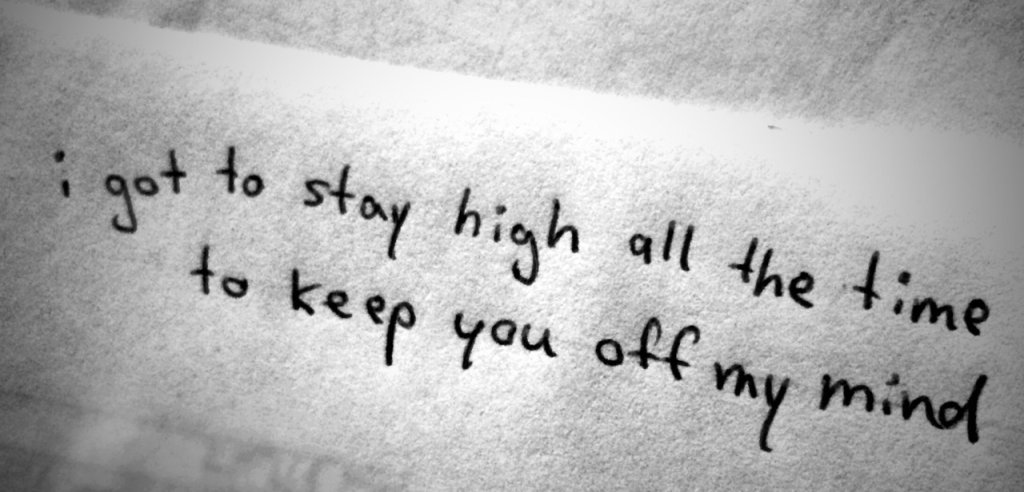 i got to stay high all the time
to keep you off my mind